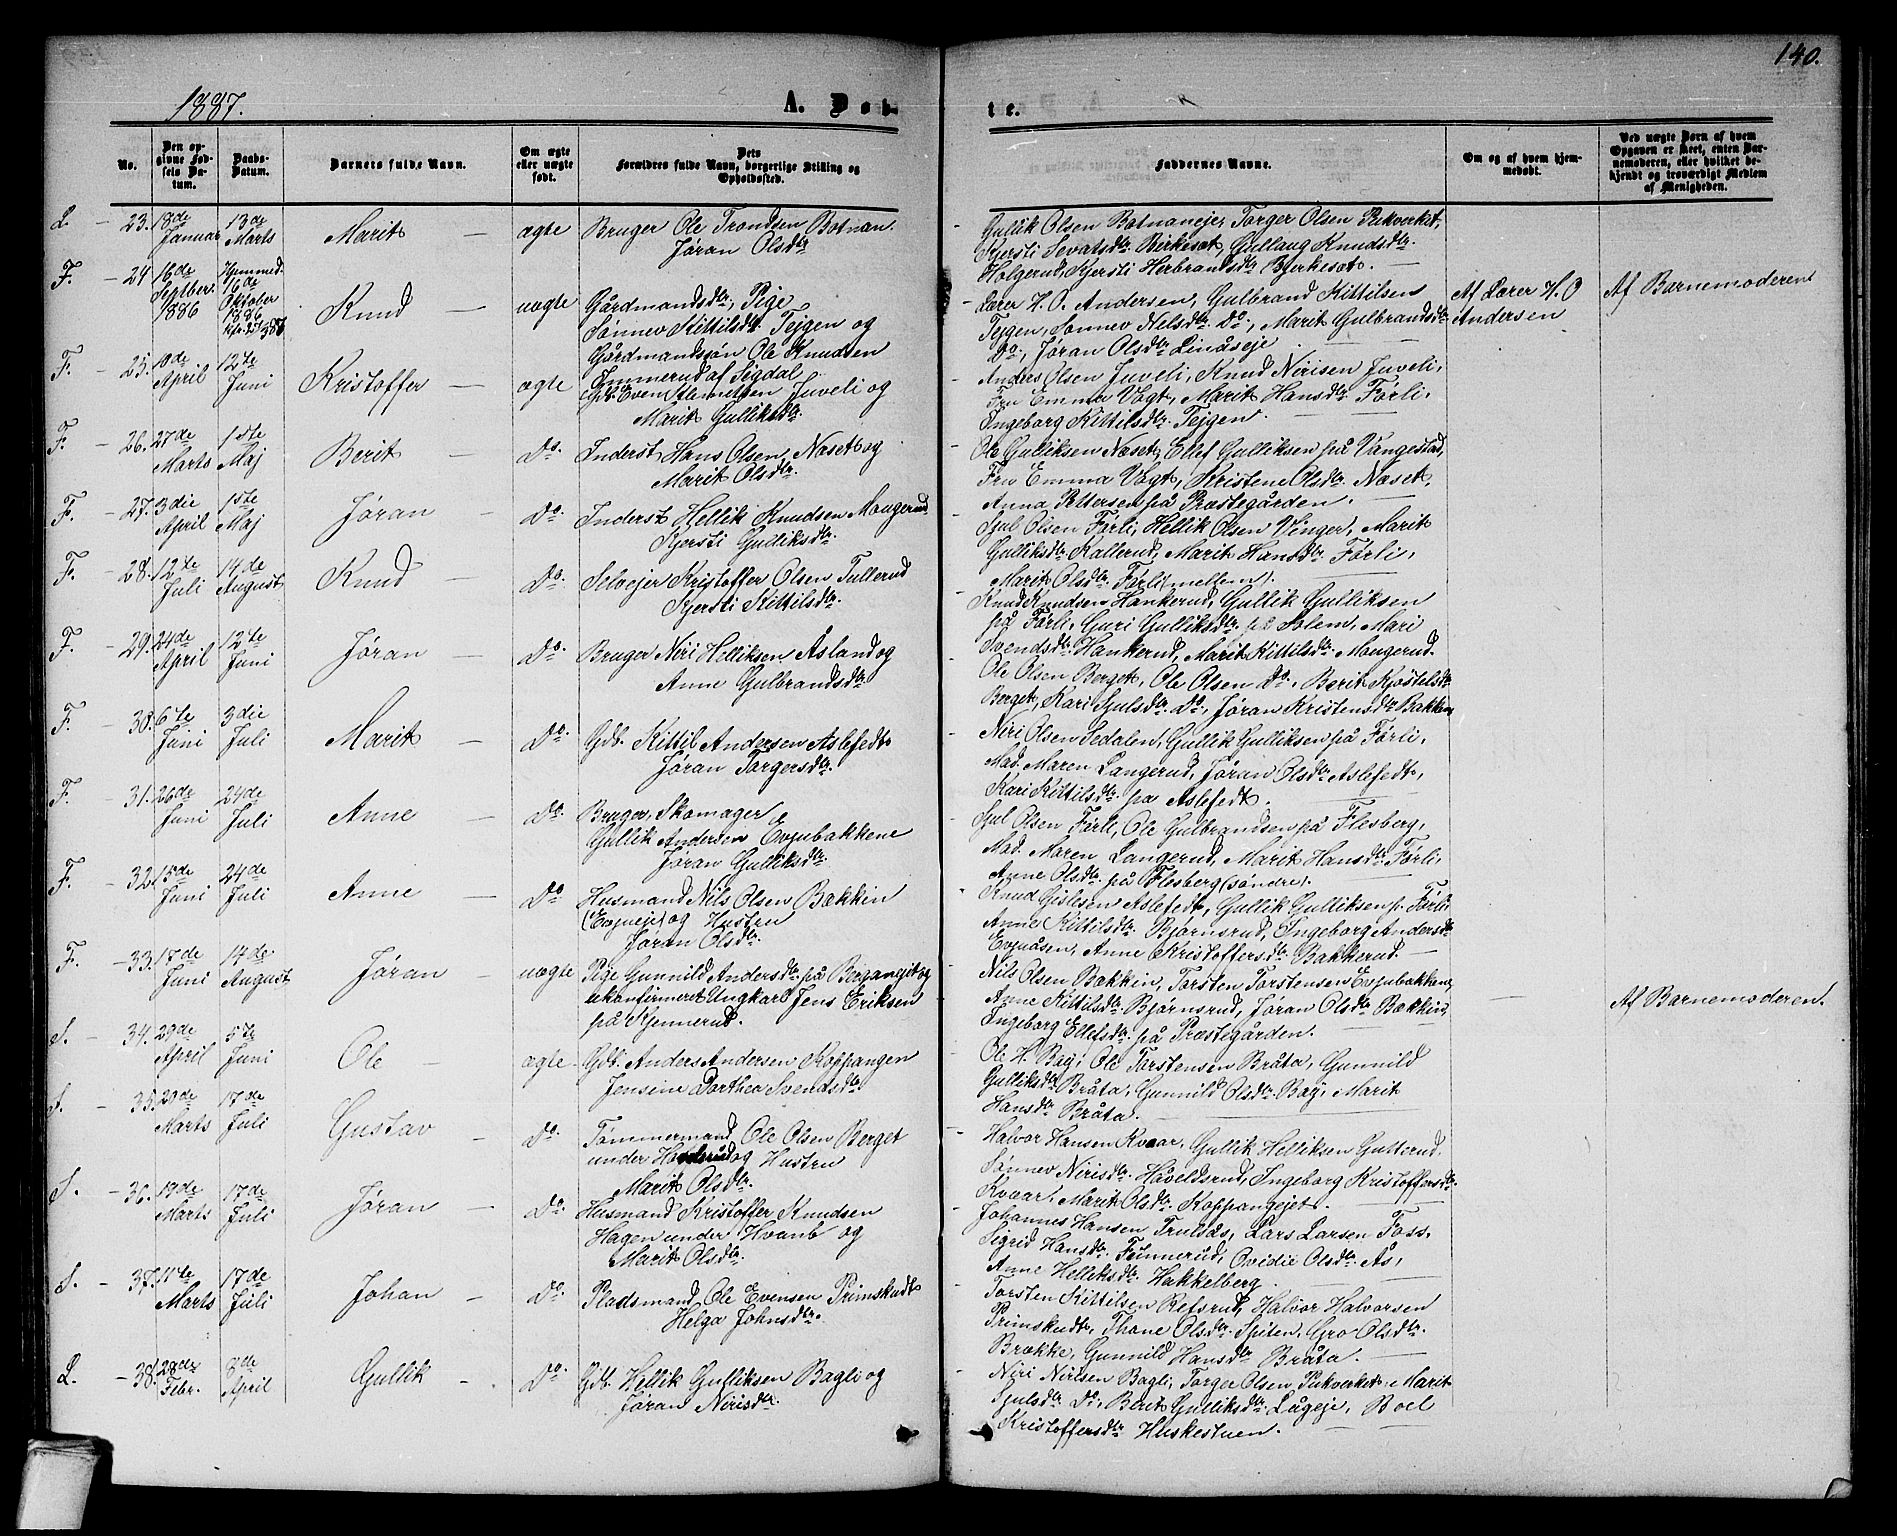 140.
1887.
A. Døb-
te.
No.
Den op-
givne Fød-
sels Da-
tum.
Daabs-
Datum.
Barnets fulde Navn.
Om ægte
eller uægte
født.
Dets
Forældres fulde Navn, borgerlige Stilling og
Opholdssted.
Faddernes Navne.
Om og af hvem hjem-
medøbt.
Ved uægte Børn af hvem
Opgaven er skeet, enten Bar-
nemoderen, eller hvilket be-
kjendt og troværdigt Medlem
af Menigheden.
L. - 23. 18de Januar 13de Marts Marit - ægte Bruger Ole Trondsen Botnan
Jøran Olsdtr
Gullik Olsen Botnaneje, Torger Olsen Pukverket,
Kjersti Sevatsdtr Birkeset, Gullaug Knudsdtr
Holgerud, Kjersti Herbrandsdtr Bjerkeset.
F. - 24 16de Septber. 1886 Hjemmed. 16de Oktober 1886 Knud - uægte Gårdmandsdtr, Pige
Sønnev Kittilsdtr. Tejgen og
Gårdmandssøn Ole Knudsen
Emmerud af Sigdal
Lærer H. O. Andersen, Gulbrand Kittilsen
Tejgen, Sønnev Nelsdtr. Do, Marit Gulbrandsdtr
Do, Jøran Olsdtr Linåseje
Af Lærer H. O
Andersen
Af Barnemoderen
F. - 25. 10de April 12te Juni Kristoffer - ægte Gdb. Even Stenersen Juveli og
Marit Gulliksdtr.
Anders Olsen Juveli, Knud Nirisen Juveli,
Fru Emma Vogt, Marit Hansdtr Førli,
Ingeborg Kittilsdtr Tejgen.
F. - 26. 27de Marts 1ste Maj Berit - do. Inderst, Hans Olsen, Næset og
Marit Olsdtr.
Ole Gulliksen Næset, Ellef Gulliksen på Vangestad,
Fru Emma Vogt, Kristene Olsdtr Næset,
Anna Pettersen på Præstegården.
F. - 27. 3die April 1ste Maj Jøran - do. Inderst Hellik Knudsen Mougerud
Kjersti Gulliksdtr.
Jul Olsen Førli, Hellik Olsen Vinger, Marit
Gulliksdtr Kallerud, Marit Hansdtr Førli,
Marit Olsdtr Førli (mellem).
F. - 28. 12te Juli 14de August Knud - do. Selvejer Kristoffer Olsen Tullerud
Kjersti Kittilsdtr.
Knud Knudsen Hankerud, Gullik Gulliksen
på Førli, Guri Gulliksdtr på Solem, Mari
Svendsdtr Hankerud, Marit Kittilsdtr Mougerud.
F. - 29. 24de April 12te Juni Jøran - do. Bruger Niri Helliksen Åsland og
Anne Gulbrandsdtr
Ole Olsen Berget, Ole Olsen do, Berit Kjøstelsdtr
Berget, Kari Julsdtr do, Jøran Kristensdtr Bakken
F. - 30. 6te Juni 3die Juli Marit - do. Gdb. Kittil Andersen Aslefedt
Jøran Torgersdtr.
Niri Olsen Sedalen, Gullik Gulliksen på Førli,
Mad. Maren Langerud, Jøran Olsdtr Aslefedt,
Kari Kittilsdtr på Aslefedt.
F. - 31. 26de Juni 24de Juli Anne - do. Bruger, Skomager
Gullik Andersen Evjubakkene
Jøran Gulliksdtr.
Jul Olsen Førli, Ole Gulbrandsen på Flesberg,
Mad. Maren Langerud, Marit Hansdtr Førli,
Anne Olsdtr på Flesberg (søndre).
F. - 32. 15de Juni 24de Juli Anne - do. Husmand Nils Olsen Bækkin
(Evjueje) og Hustru
Jøran Olsdtr.
Knud Gislesen Aslefedt, Gullik Gulliksen p. Førli
Anne Kittilsdtr. Bjørnsrud, Ingeborg Andersdtr
Evjuåsen, Anne Kristoffersdtr Bakkerud.
F. - 33. 17de Juni 14de August Jøran - uægte Pige Gunnild Andersdtr på Berganejet og
ukonfirmeret Ungkarl Jens Eriksen
på Kjennerud.
Nils Olsen Bækkin, Torsten Torstensen Evjubakkene,
Anne Kittilsdtr Bjørnsrud, Jøran Olsdtr Bækkin,
Ingeborg Ellefsdtr. på Præstegården.
Af Barnemoderen.
S. - 34. 29de April 5te Juni Ole - ægte Gdb. Anders Andersen Koppangen
Jensine Dorthea Svendsdtr
Ole H. Bay, Ole Torstensen Bråta, Gunnild
Gulliksdtr Bråta, Gunnild Olsdtr Bay, Marit
Hansdtr Bråta.
S. - 35. 20de Marts 17de Juli Gustav - do. Tømmermand Ole Olsen Berget
under og Hustru
Marit Olsdtr.
Halvor Hansen Kvaar, Gullik Helliksen Gutterud,
Sønnev Nirisdtr Håveldsrud, Ingeborg Kristoffersdtr
Kvaar, Marit Olsdtr Koppangejet.
S. - 36. 19de Marts 17de Juli Jøran - do. Husmand Kristoffer Knudsen
Hagen under Hvanb og
Marit Olsdtr.
Johannes Hansen Trulsås, Lars Larsen Foss,
Sigrid Hansdtr Funnerud, Ovidie Olsdtr Ås,
Anne Helliksdtr. Hakkelberg.
S. - 37. 11te Marts 17de Juli Johan - do. Pladsmand Ole Evensen Primskudt
Helga Johnsdtr.
Torsten Kittilsen Refsrud, Halvor Halvorsen
Primskudt, Thone Olsdtr. Spiten, Gro Olsdtr.
Brække, Gunnild Hansdtr Bråta.
L. - 38. 28de Febr. 8de April Gullik - do. Gdb. Hellik Gulliksen Bagli og
Jøran Nirisdtr.
Niri Nirisen Bagli, Torger Olsen Pukverket, Marit
Julsdtr Do, Berit Gulliksdtr Lågeje, Boel
Kristoffersdtr Huskestuen.